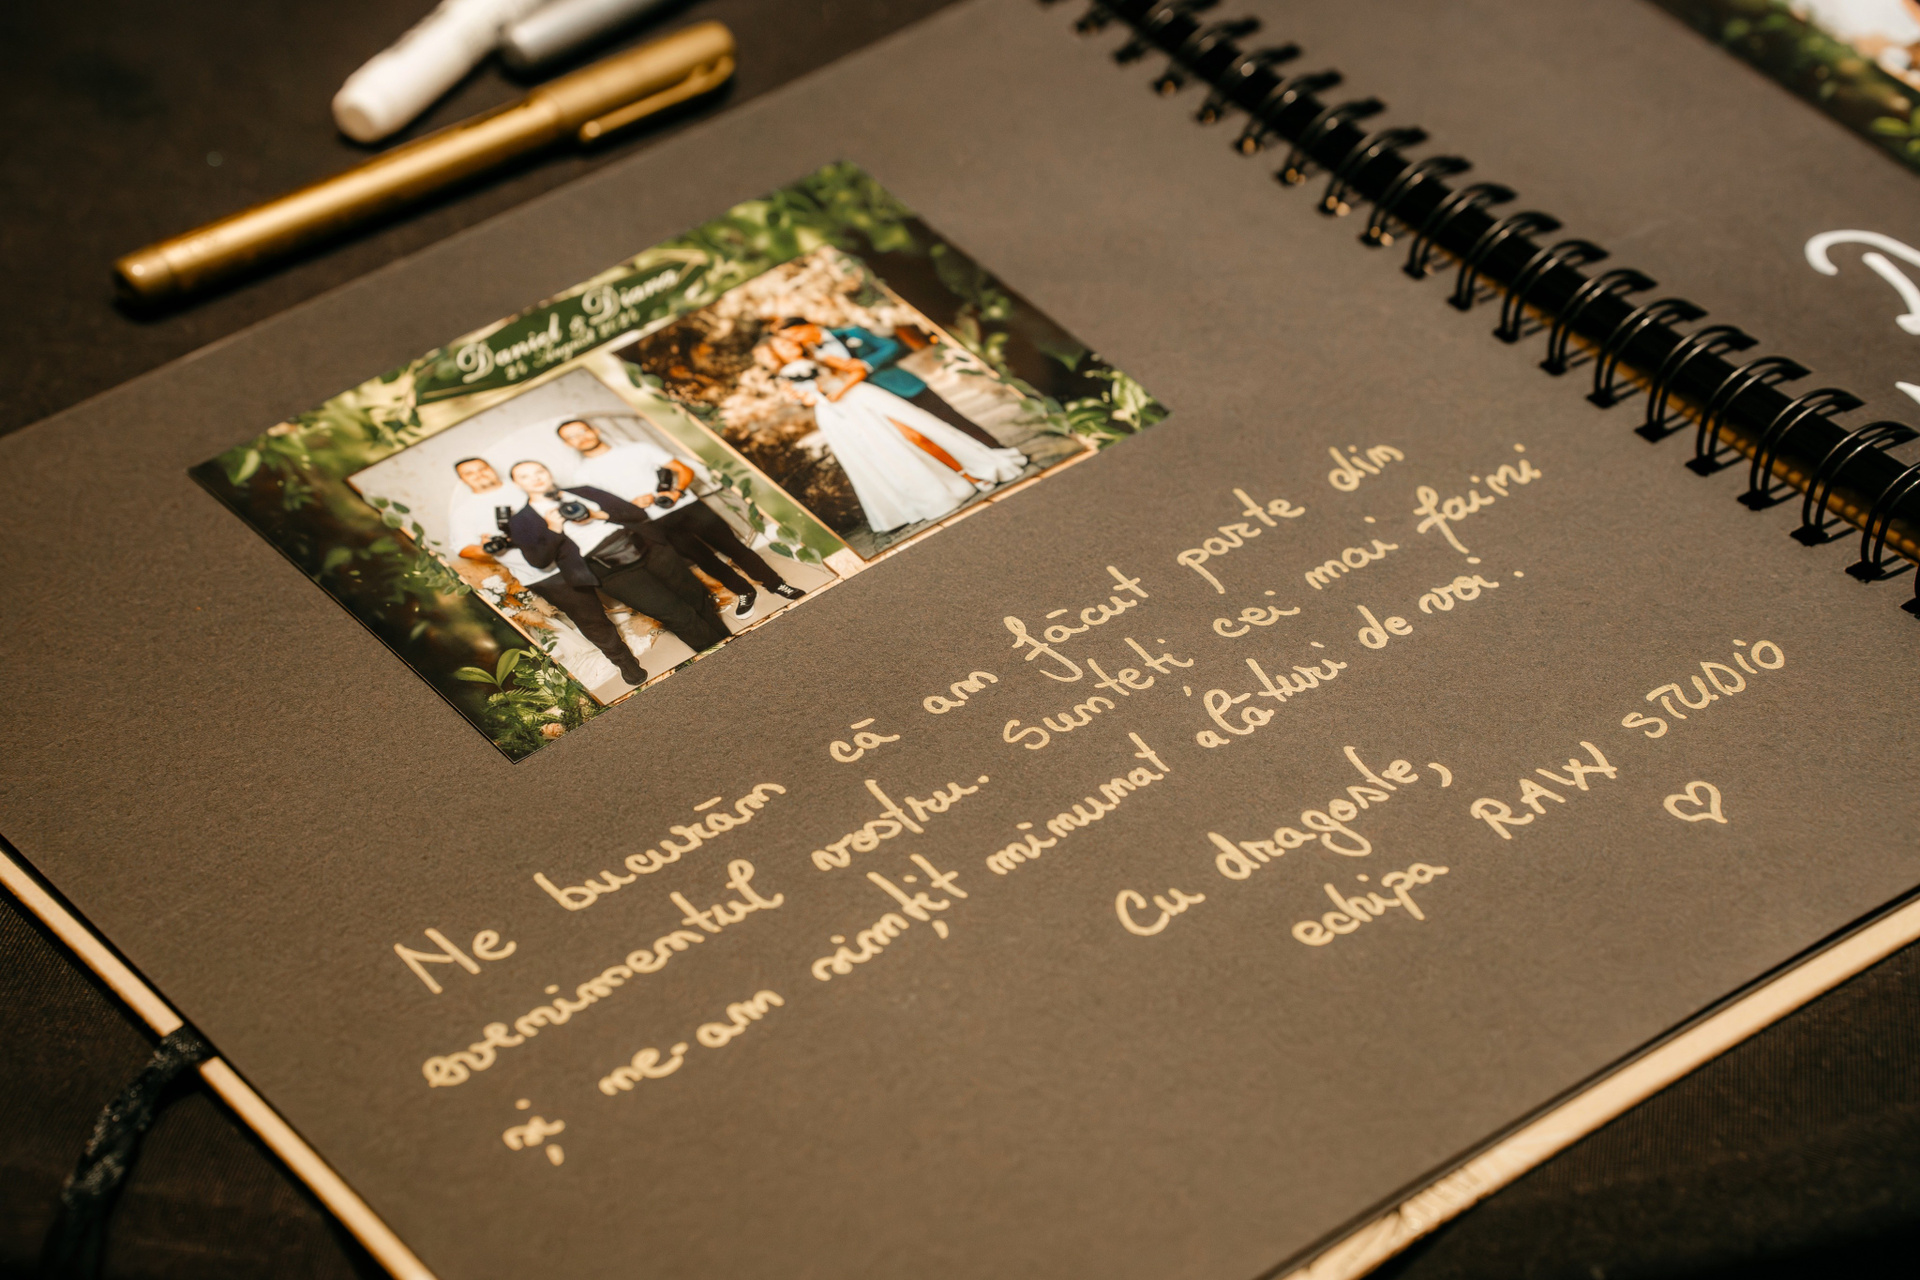 Daniel & Diana
August
Ne bucurăm că am făcut parte din
evenimentul vostru. Sunteti cei mai faini
și ne-am simțit minunat alături de voi.
Cu dragoste,
echipa RAW STUDIO